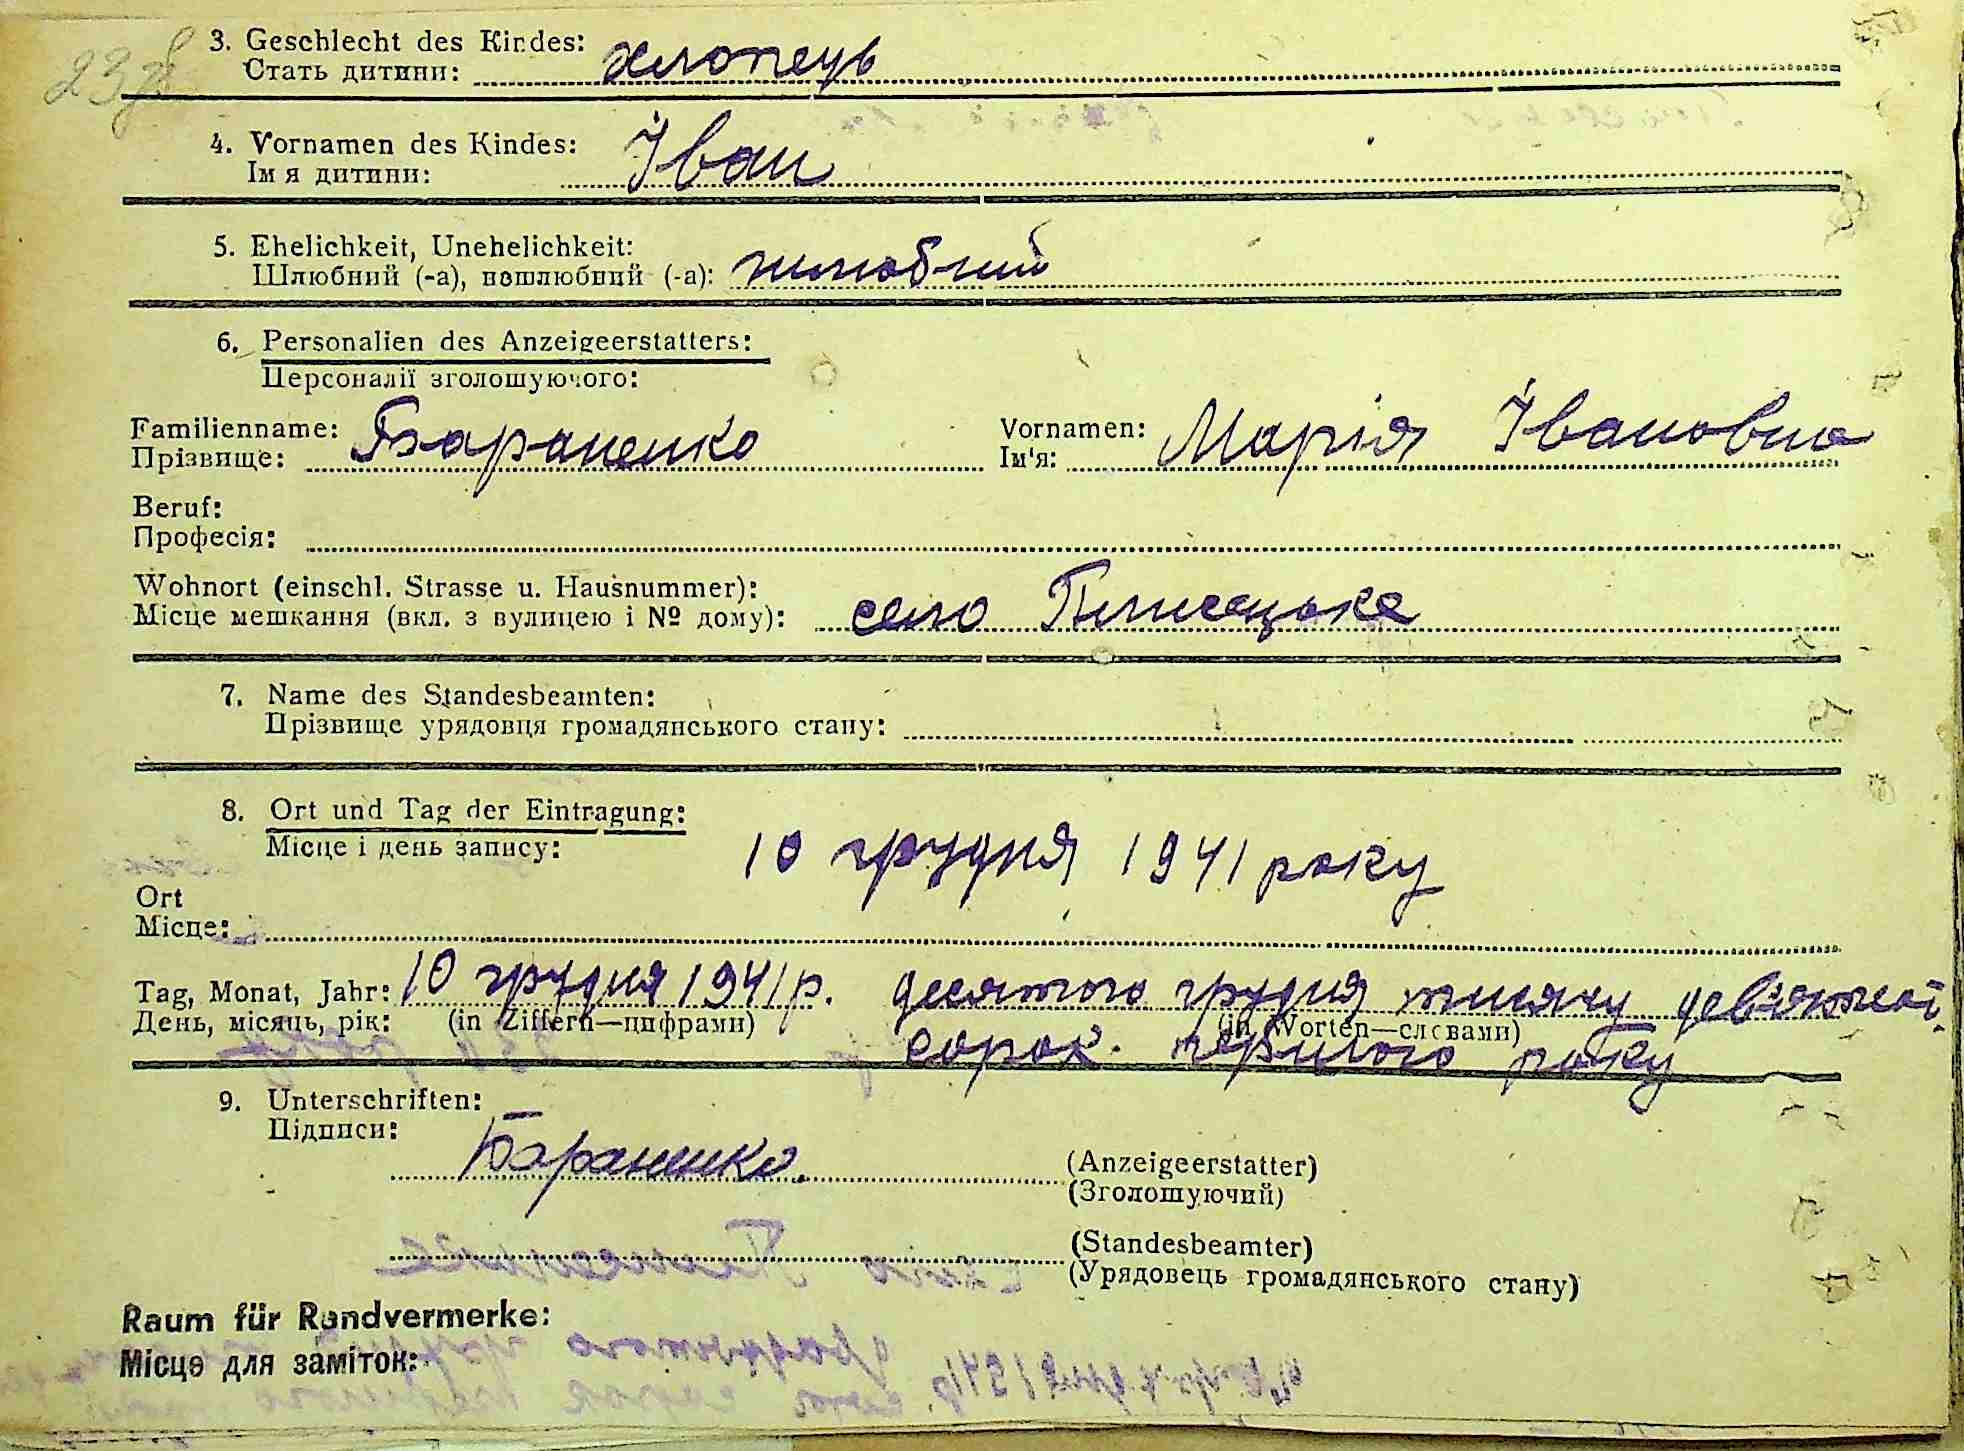 3. Geschlecht des Kindes:
Стать дитини: хлопець
4. Vornamen des Kindes:
Імя дитини: Іван
5. Ehelichkeit, Unehelichkeit:
Шлюбний (-а), нешлюбний (-а): шлюбний
6. Personalien des Anzeigeerstatters:
Персоналії зголошуючого:
Familienname: Бараненко Vornamen: Марія Івановна
Прізвище: Ім'я:
Beruf:
Професія:
Wohnort (einschl. Strasse u. Hausnummer):
Місце мешкання (вкл. з вулицею і № дому): село Плисецьке
7. Name des Standesbeamten:
Прізвище урядовця громадянського стану:
8. Ort und Tag der Eintragung:
Місце і день запису: 10 грудня 1941 року
Ort
Місце:
Tag, Monat, Jahr: 10 грудня 1941 р. десятого грудня тисячу девятсот
День, місяць, рік: (in Ziffern—цифрами) (in Worten—словами)
сорок першого року
9. Unterschriften:
Підписи: Бараненко
(Anzeigeerstatter)
(Зголошуючий)
(Standesbeamter)
(Урядовець громадянського стану)
Raum für Randvermerke:
Місце для заміток: